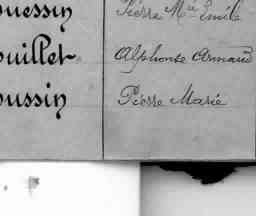 ouessin Pierre Mie Emile
ouillet Alphonse Armand
oussin Pierre Marie